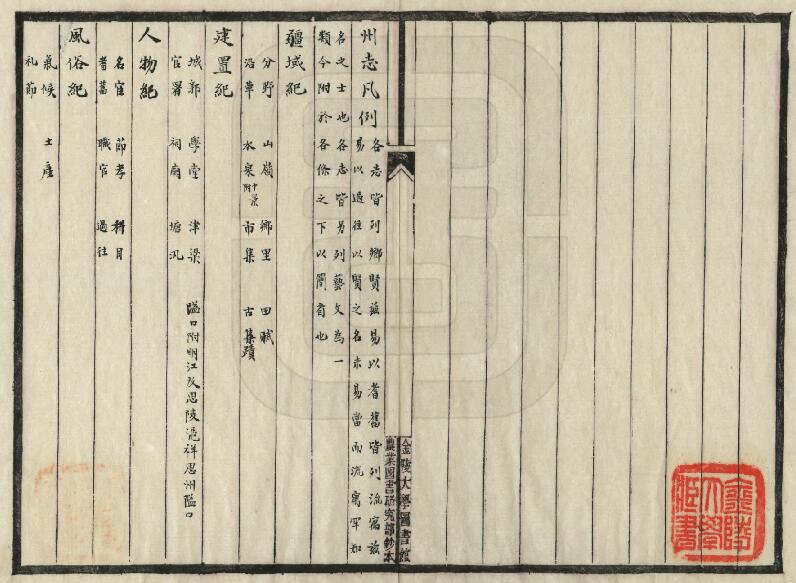 金陵大學圖書館
農業圖書研究部鈔本
州志凡例
各志皆列鄉賢茲易以耆舊皆列流寓茲
易以過往以賢之名未易當而流寓罕知
名之士也各志皆另列藝文為一
類今附於各條之下以簡省也
疆域紀
分野 山嶺 鄉里 田賦
沿革 水泉附十景 市集 古蹟
建置紀
城郭 學堂 津梁 隘口附明江及思陵憑祥思州隘口
官署 祠廟 塘汛
人物紀
名宦 節孝 科目
耆舊 職官 過往
風俗紀
氣候 土產
礼節